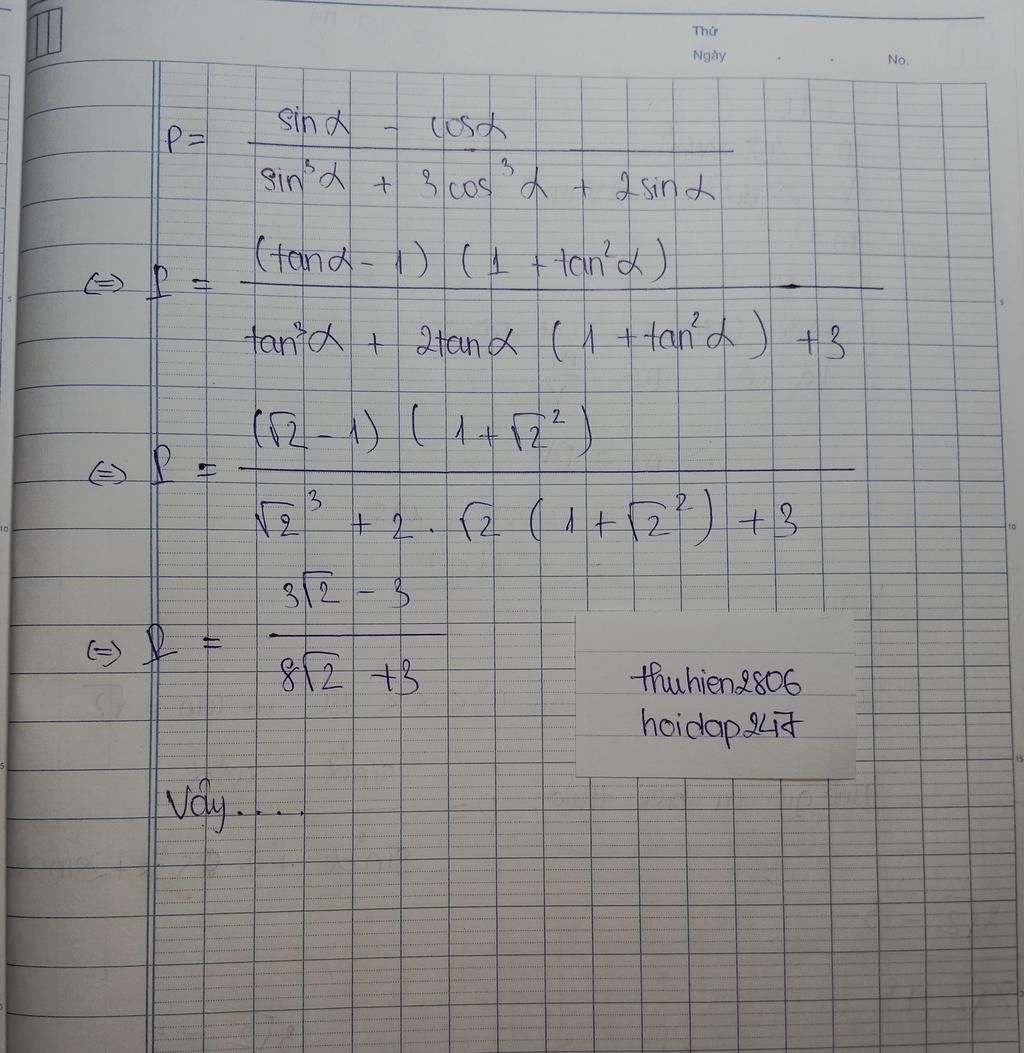 Thứ
Ngày . . No.
P = (sinα - cosα) / (sin³α + 3cos³α + 2sinα)
⇔ P = ((tanα - 1) (1 + tan²α)) / (tan³α + 2tanα (1 + tan²α) + 3)
⇔ P = ((√2 - 1) (1 + √2²)) / (√2³ + 2 . √2 (1 + √2²) + 3)
⇔ P = (3√2 - 3) / (8√2 + 3)
thuhien2806
hoidap247
Vậy.....